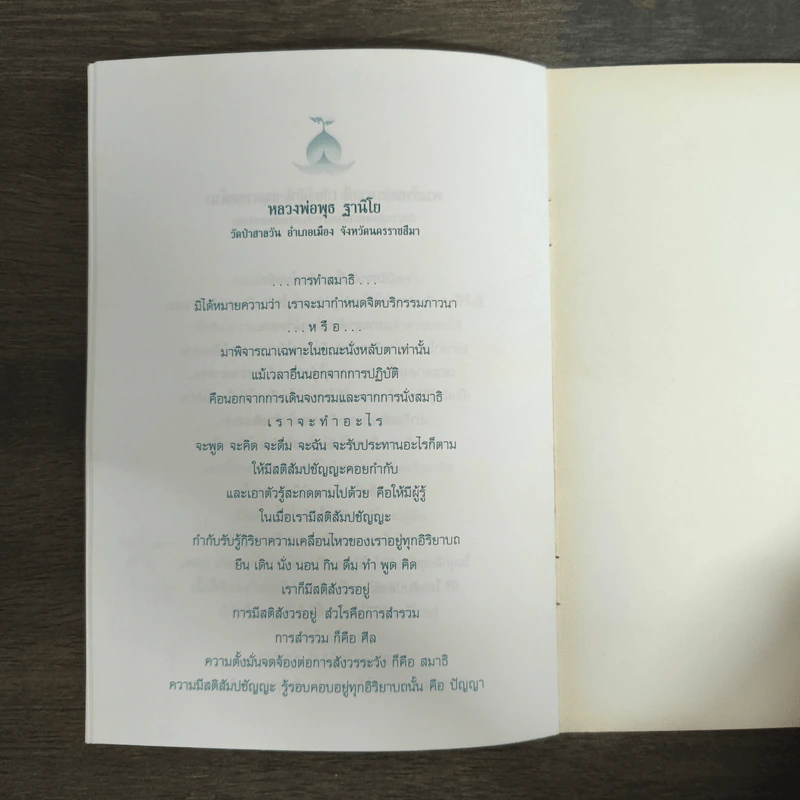 หลวงพ่อพุธ ฐานิโย
วัดป่าสาลวัน อำเภอเมือง จังหวัดนครราชสีมา
. . . การทำสมาธิ . . .
มิได้หมายความว่า เราจะมากำหนดจิตบริกรรมภาวนา
. . . ห รื อ . . .
มาพิจารณาเฉพาะในขณะนั่งหลับตาเท่านั้น
แม้เวลาอื่นนอกจากการปฏิบัติ
คือนอกจากการเดินจงกรมและจากการนั่งสมาธิ
เ ร า จ ะ ทำ อ ะ ไ ร
จะพูด จะคิด จะดื่ม จะฉัน จะรับประทานอะไรก็ตาม
ให้มีสติสัมปชัญญะคอยกำกับ
และเอาตัวรู้สะกดตามไปด้วย คือให้มีผู้รู้
ในเมื่อเรามีสติสัมปชัญญะ
กำกับรับรู้กิริยาความเคลื่อนไหวของเราอยู่ทุกอิริยาบถ
ยืน เดิน นั่ง นอน กิน ดื่ม ทำ พูด คิด
เราก็มีสติสังวรอยู่
การมีสติสังวรอยู่ สํวโรคือการสำรวม
การสำรวม ก็คือ ศีล
ความตั้งมั่นจดจ้องต่อการสังวรระวัง ก็คือ สมาธิ
ความมีสติสัมปชัญญะ รู้รอบคอบอยู่ทุกอิริยาบถนั้น คือ ปัญญา